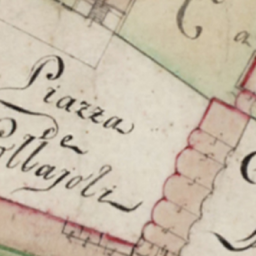 Piazza
de
Pollajoli